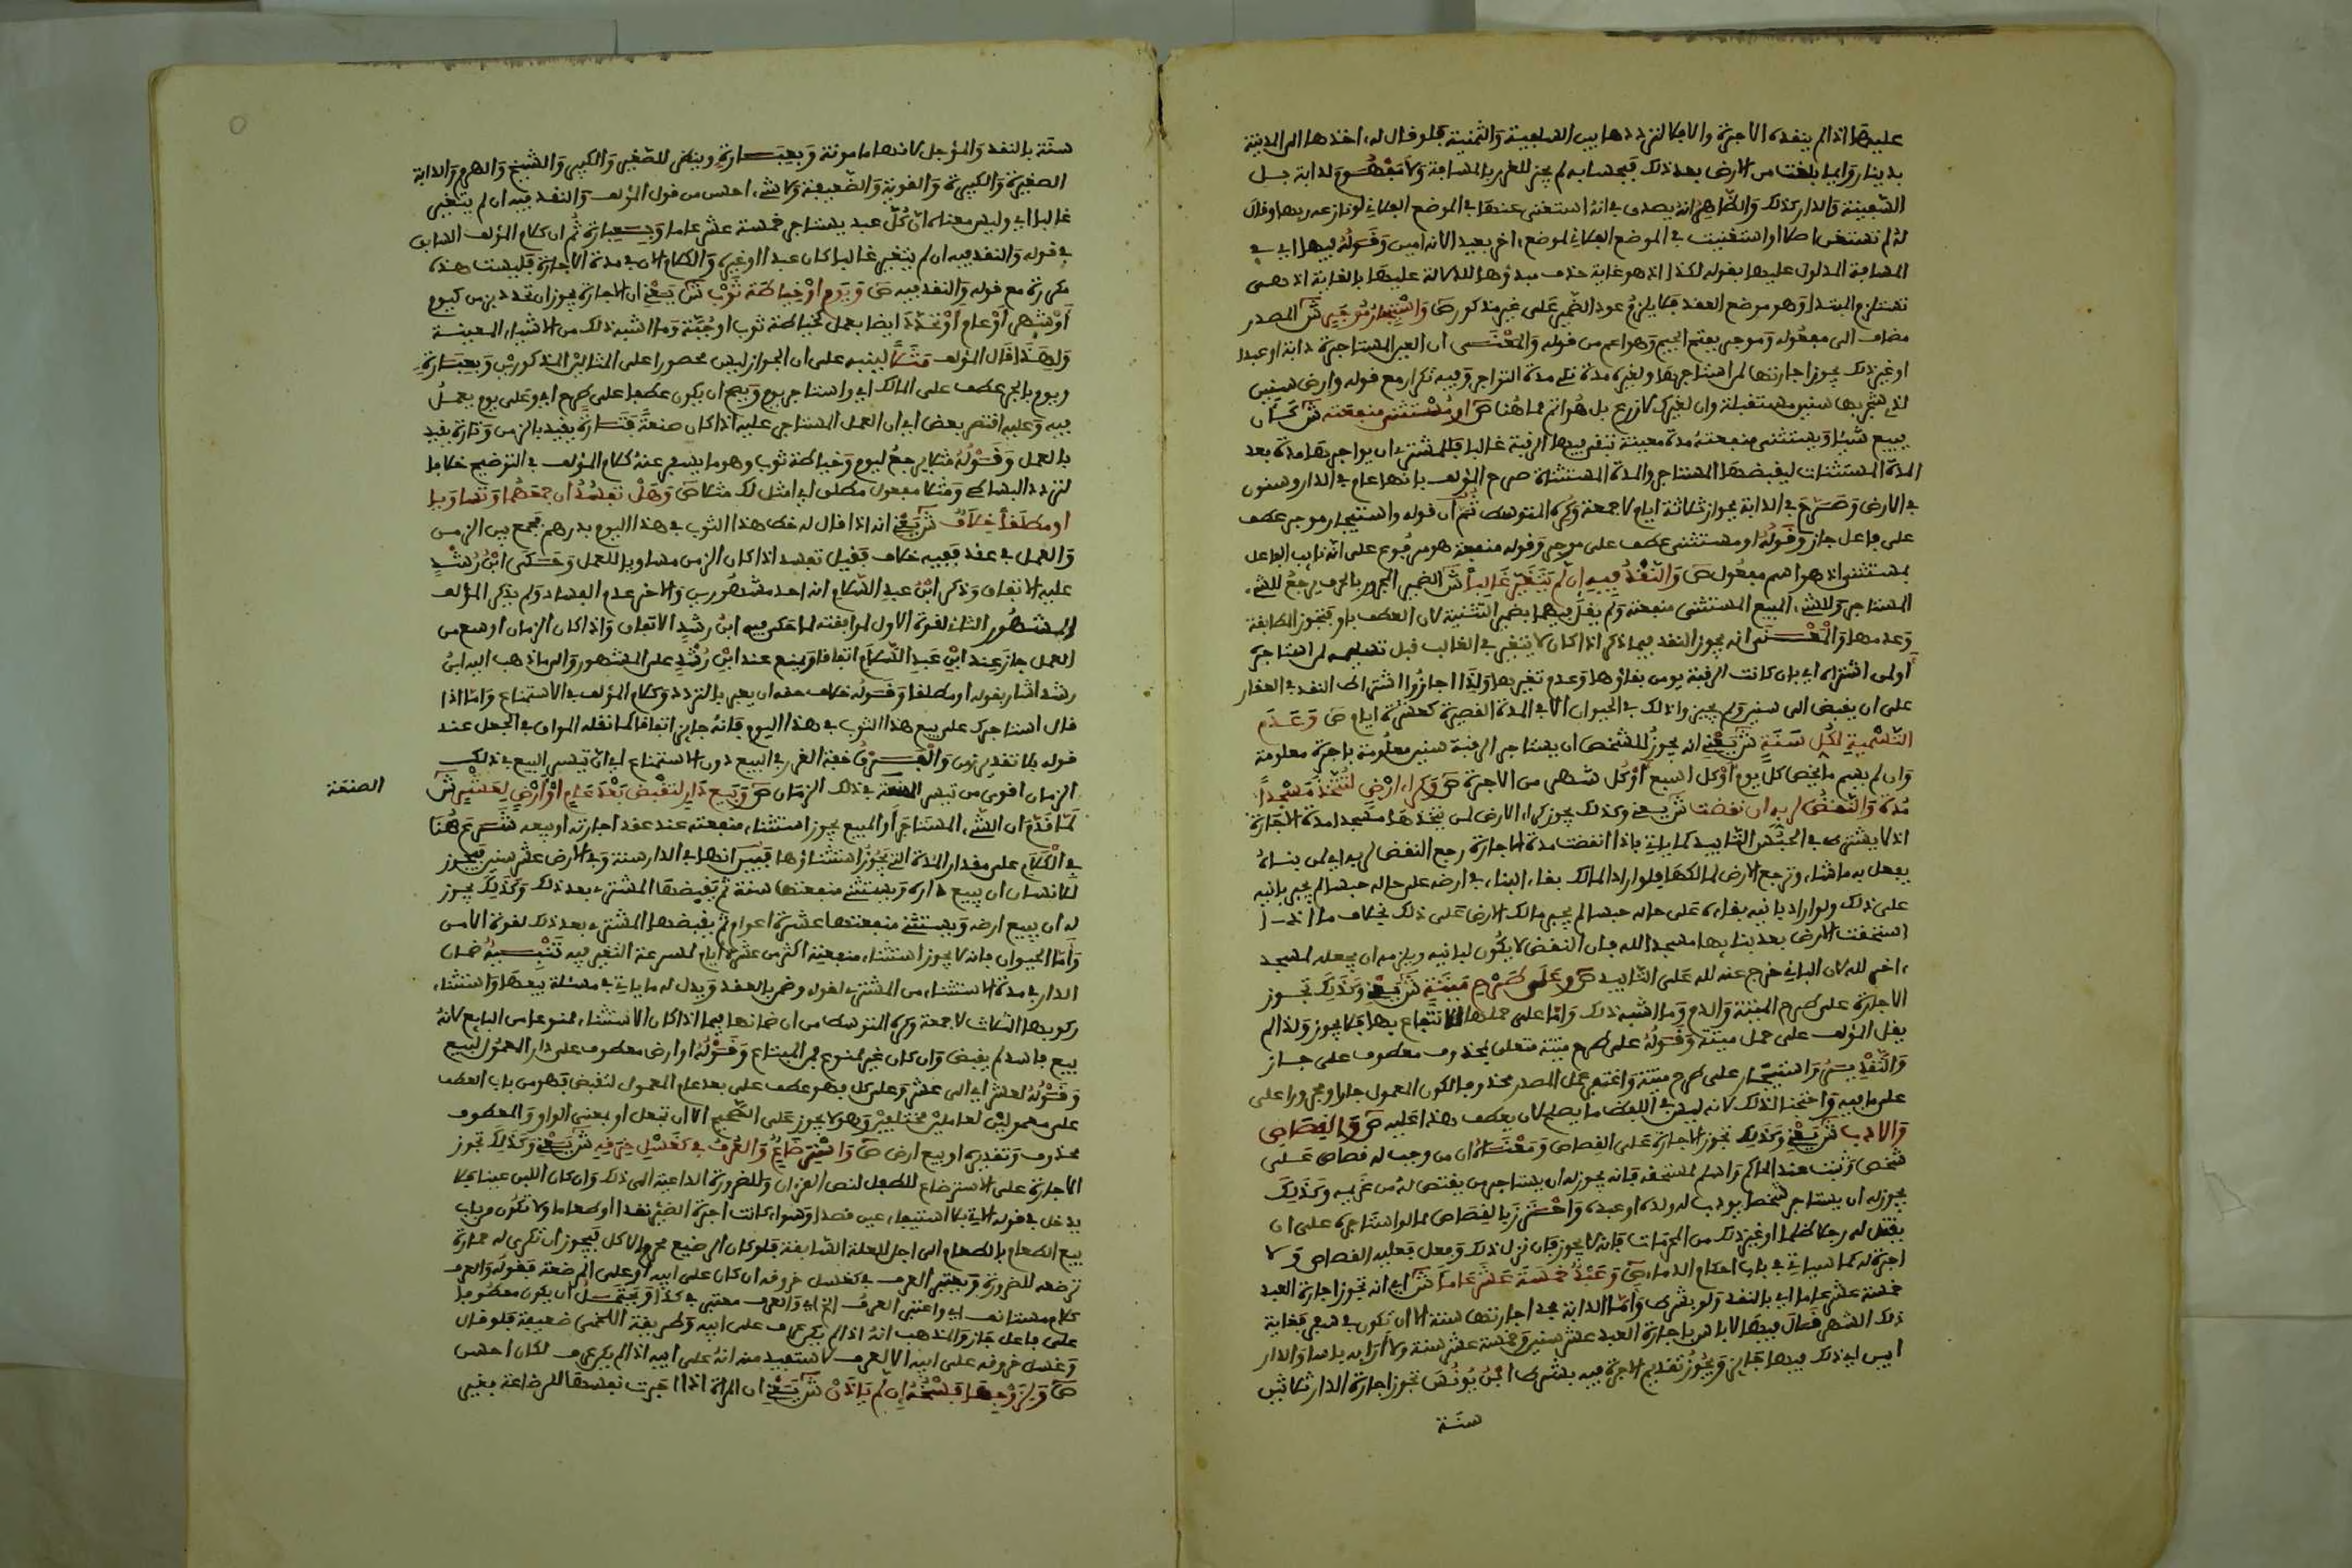 عليها اذا لم ينقده الاجرة والا فلا لترددها بين السلفية والثمنية فلو قال له اخذها الى المدينة
بدينار وايما بلغت من الارض بعد ذلك فبحسابه لم يجز للغرر بالمسافة ولا مفهوم لدابة بل
السفينة والدار كذلك والظاهر انه يصدق في انه استغنى عنها في الموضع الفلاني لو نازعه ربها وقال
له لم تستغن اصلا او استغنيت في الموضع الفلاني لموضع اخر بعيد لانه امين وقوله فيها اي في
المسافة المدلول عليها بقوله لكذا اذ هو غاية حذف مبدؤها للدلالة عليها بالغاية اذ هي
تستلزم المبتدا وهو موضع العقد فلا يلزم عود الضمير على غير مذكور ص واستيجار موجر ش المصدر
مضاف الى مفعوله وموجر بفتح الجيم وهو اعم من قوله والمعنى ان العين المستاجرة دابة او عبدا
او غير ذلك يجوز اجارتها لمن استاجرها ولغيره مدة تلي مدة التواجر وفيه تكرار مع قوله وارض سنين
لذي شجر بها سنين مستقبلة وان لغيرك لا زرع بل هو اتم مما هنا ص او مستثنى منفعته ش كان
يبيع شيئا ويستثنى منفعته مدة معينة تبقى فيها الرقبة غالبا فللمشتري ان يواجرها مدة بعد
المدة المستثنات ليقبضها المستاجر والمدة المستثناة صرح المؤلف بانها عام في الدار وسنون
في الارض وصرح في الدابة بجواز ثلاثة ايام لا جمعة وكره المتوسط ثم ان قوله واستيجار موجر عطف
على فاعل جاز وقوله او مستثنى عطف على موجر وقوله منفعة هو مرفوع على انه نايب الفاعل
بمستثنى اذ هو اسم مفعول ص والنقد فيه ان لم يتغير غالبا ش الضمير المجرور بالحرف يرجع للشيء
المستاجر وللشيء المبيع المستثنى منفعته ولم يقل فيهما بضمير التثنية لان العطف باو فتجوز المطابقة
وعدمها والمعنى انه يجوز النقد فيما ذكر اذا كان لا يتغير في الغالب قبل تسليمه لمن استاجره
او لمن اشتراه اي بان كانت الرقبة يومن بقاؤها وعدم تغيرها ولذا اجازوا اشتراط النقد في العقار
على ان يقبض الى سنين ولم يجيزوا ذلك في الحيوان الا في المدة القصيرة كعشرة ايام ص وعدم
التسمية لكل سنة ش يعني انه يجوز للشخص ان يستاجر الرقبة سنين معلومة باجرة معلومة
وان لم يسم ما يخص كل يوم او كل اسبوع او كل شهر من الاجرة ص وكراء ارض لتتخذ مسجدا
مدة والنقض لربه ان نقضت ش يعني وكذلك يجوز كراء الارض لمن يتخذها مسجدا مدة الاجارة
اذ لا يشترط في الحبس التابيد كما ياتي فاذا انقضت مدة الاجارة رجع النقض لربه اي لمن بناه
يفعل به ما شاء وترجع الارض لمالكها فلو اراد المالك بقاء البناء في ارضه على حاله حبسا لم يجبر بانيه
على ذلك ولو اراد بانيه بقاءه على حاله حبسا لم يجبر مالك الارض على ذلك بخلاف ما اذا
استحقت الارض بعد بنايها مسجدا لله فان النقض لا يكون لبانيه ويلزمه ان يجعله لمسجد
اخر لله لان الباني خرج عنه لله على التابيد ص وعلى طرح ميتة ش يعني وكذلك تجوز
الاجارة على طرح الميتة والدم وما اشبه ذلك واما على حملها للانتفاع بها فلا يجوز ولذا لم
يقل المؤلف على حمل ميتة وقوله على طرح ميتة متعلق بمحذوف معطوف على جاز
والتقدير واستيجار على طرح ميتة واغتفر عمل المصدر محذوفا لكون المعمول جارا ومجرورا على
على ما فيه واحتجنا لذلك لانه ليس في اللفظ ما يصلح لان يعطف هذا عليه ص والقصاص
والادب ش يعني وكذلك تجوز الاجارة على القصاص ومعناه ان من وجب له قصاص على
شخص وثبت عند الحاكم واسلم لمستحقه فانه يجوز له ان يستاجر من يقتص له من غريمه وكذلك
يجوز له ان يستاجر شخصا يودب له ولده او عبده واحترز بالقصاص مما لو استاجره على ان
يقتل له رجلا ظلما او غير ذلك من المحرمات فانه لا يجوز فان نزل ذلك وفعل فعليه القصاص ولا
اجرة له كما سياتي في باب احكام الدماء ص وعبد خمسة عشر عاما ش اي انه تجوز اجارة العبد
خمسة عشر عاما اي بالنقد ولو بشرط واما الدابة فحد اجارتها سنة الا ان تكون في سفر فغاية
ذلك الشهر فقال فيها لا باس باجارة العبد عشر سنين وخمسة عشر سنة ولا ارى به باسا والدار
ابين اي ذلك فيها جايز ويجوز تقديم الاجرة فيه بشرط ابن يونس تجوز اجارة الدار ثلاثين
سنة
سنة بالنقد والمؤجل لانها مامونة وبعبارة وينظر للصغير والكبير والشيخ والهرم والدابة
الصغيرة والكبيرة والقوية والضعيفة ولا شيء احسن من قول المؤلف والنقد فيه ان لم يتغير
غالبا اي وليس معناه ان كل عبد يستاجر خمسة عشر عاما وبعبارة ثم ان كلام المؤلف السابق
في قوله والنقد فيه ان لم يتغير غالبا كان عبدا او غيره والكلام الان في مدة الاجارة فليست هذه
مكررة مع قوله والنقد فيه ص ويوم او خياطة ثوب ش يعني ان الاجارة يجوز ان تحدد بزمن كيوم
او شهر او عام او تحدد ايضا بعمل كخياطة ثوب او جبة وما اشبه ذلك من الاشياء المعينة
ولهذا قال المؤلف مثلا لينبه على ان الجواز ليس محصورا على المثالين المذكورين وبعبارة
ويوم بالجر عطف على المالك اي واستاجر يوم ويصح ان يكون عطفا على طرح اي وعلى يوم يعمل
فيه وعليه اقتصر بعض اي ان العمل المستاجر عليه اذا كان صنعة فتارة يقيد بالزمن وتارة يقيد
بالعمل وقوله مثلا يرجع ليوم وخياطة ثوب وهو ما يسفر عنه كلام المؤلف في التوضيح خلافا
لتردد البساطي ومثلا مفعول مطلق اي امثل لك مثلا ص وهل تفسد ان جمعهما وتساويا
او مطلقا خلاف ش يعني انه اذا قال له خط هذا الثوب في هذا اليوم بدرهم فجمع بين الزمن
والعمل في عقد ففيه خلاف فقيل تفسد اذا كان الزمن مساويا للعمل وحكى ابن رشد
عليه الاتفاق وذكر ابن عبد السلام انه احد مشهورين والاخر عدم الفساد ولم يذكر المؤلف
المشهور الثاني لقوة الاول لموافقته لما حكى فيه ابن رشد الاتفاق واذا كان الزمان اوسع من
العمل جاز عند ابن عبد السلام اتفاقا ويمنع عند ابن رشد على المشهور والى ما ذهب اليه ابن
رشد اشار بقوله او مطلقا وقوله خلاف حقه ان يعبر بالتردد وكلام المؤلف في الاستمناع واما اذا
قال استاجرك على بيع هذا الثوب في هذا اليوم فانه جايز اتفاقا كما نقله المواق في الجعل عند
قوله بلا تقدير زمن والفرق خفة الغرر في البيع دون الاستمناع اي ان تيسر البيع في ذلك
الزمان اقوى من تيسر الصنعة في ذلك الزمان ص وبيع دار لتقبض بعد عام او ارض لعشر ش
الصنعة
لما قدم ان الشيء المستاجر او المبيع يجوز استثناء منفعته عند عقد اجارته او بيعه شرع هنا
في الكلام على مقدار المدة التي يجوز استثناؤها فبين انها في الدار سنة وفي الارض عشر سنين فيجوز
للانسان ان يبيع داره ويستثني منفعتها سنة ثم يقبضها المشتري بعد ذلك وكذلك يجوز
له ان يبيع ارضه ويستثني منفعتها عشرة اعوام ثم يقبضها المشتري بعد ذلك لقوة الامن
واما الحيوان فانه لا يجوز استثناء منفعته اكثر من عشرة ايام لسرعة التغير فيه تنبيه ضمان
الدار في مدة الاستثناء من المشتري لقوله وضمن بالعقد ويدل له ما ياتي في مسئلة بيعها واستثناء
ركوبها الثلاث لا جمعة وكره المتوسط من ان ضمانها فيما اذا كان الاستثناء ممنوعا من البايع لانه
بيع فاسد لم يقبض وان كان غير ممنوع فمن المبتاع وقوله او ارض معطوف على دار المعمول لبيع
وقوله لعشر اي الى عشر وعلى كل فهو عطف على بعد عام المعمول لتقبض فهو من باب العطف
على معمولين لعاملين مختلفين وهو لا يجوز على الصحيح الا ان تجعل او بمعنى الواو والمعطوف
محذوف وتقديره او بيع ارض ص واسترضاع والعرف في كغسل خرقه ش يعني وكذلك تجوز
الاجارة على الاسترضاع للطفل لنص القران وللضرورة الداعية الى ذلك وان كان اللبن عينا فلا
يدخل في قوله الاتي بلا استيفاء عين قصدا وسواء كانت اجرة الضئر نقدا او طعاما ولا تكون من باب
بيع الطعام بالطعام الى اجل للعلة السابقة فلو كان الرضيع محرم الاكل فيجوز ان تكرى له حمارة
ترضعه للضرورة ويعتبر العرف في كغسل خروقه ان كان على ابيه او على المرضعة فقوله والعرف
كلام مستانف اي واعتبر العرف الخ اي والعرف معتبر في كذا ويحتمل ان يكون معطوفا
على فاعل جاز والمذهب انه اذا لم يكن عرف على ابيه وطريقة اللخمي ضعيفة فلو قال
وغسل خروقه على ابيه الا لعرف لاستفيد منه انه على ابيه اذا لم يكن عرف لكان احسن
ص ولزوجها فسخه ان لم ياذن ش يعني ان المراة اذا اجرت نفسها للرضاعة بغير